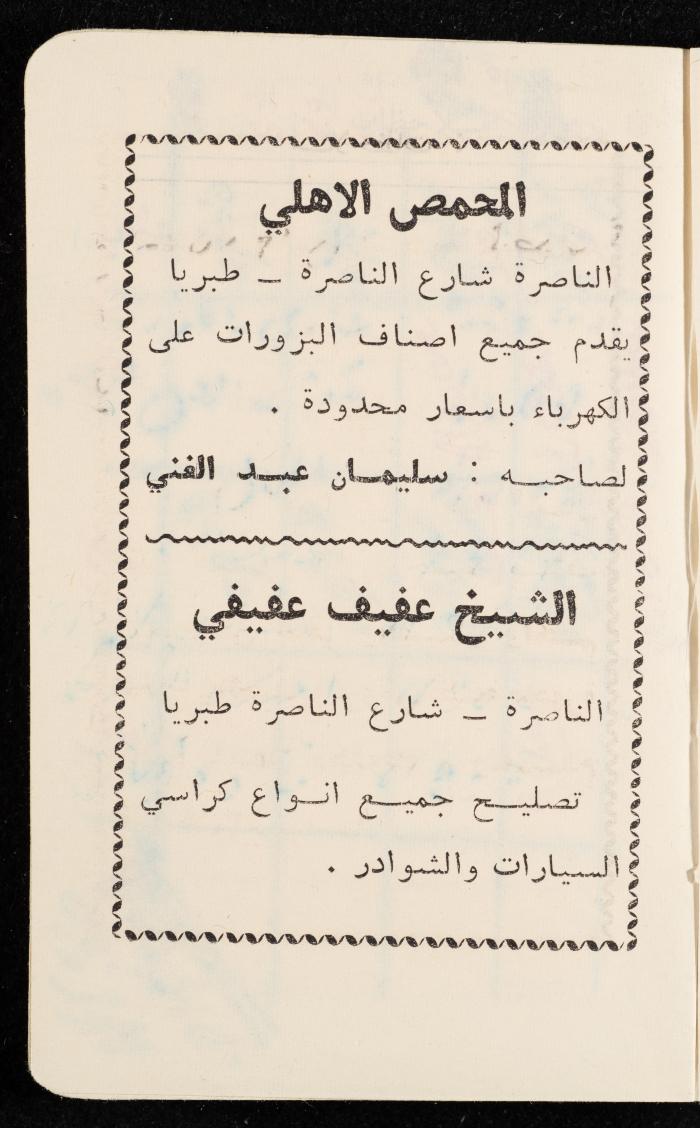 المحمص الاهلي
الناصرة شارع الناصرة – طبريا
يقدم جميع اصناف البزورات على
الكهرباء باسعار محدودة .
لصاحبه : سليمان عبد الغني
الشيخ عفيف عفيفي
الناصرة – شارع الناصرة طبريا
تصليح جميع انواع كراسي
السيارات والشوادر .